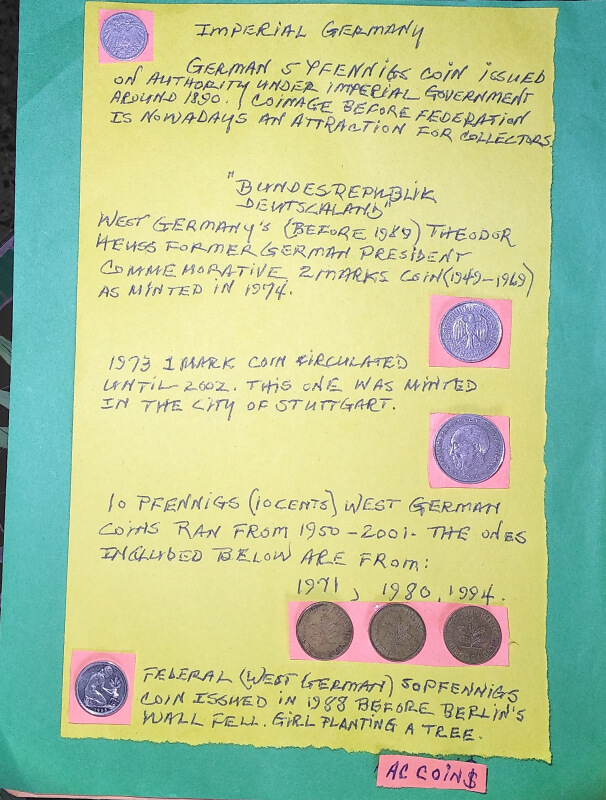 IMPERIAL GERMANY
GERMAN 5 PFENNIGS COIN ISSUED
ON AUTHORITY UNDER IMPERIAL GOVERNMENT
AROUND 1890. COINAGE BEFORE FEDERATION
IS NOWADAYS AN ATTRACTION FOR COLLECTORS
"BUNDESREPUBLIK
DEUTSCALAND"
WEST GERMANY'S (BEFORE 1989) THEODOR
HEUSS FORMER GERMAN PRESIDENT
COMMEMORATIVE 2 MARKS COIN (1949-1969)
AS MINTED IN 1974.
1973 1 MARK COIN CIRCULATED
UNTIL 2002. THIS ONE WAS MINTED
IN THE CITY OF STUTTGART.
10 PFENNIGS (10 CENTS) WEST GERMAN
COINS RAN FROM 1950-2001. THE ONES
INCLUDED BELOW ARE FROM:
1971, 1980, 1994.
FEDERAL (WEST GERMAN) 50 PFENNIGS
COIN ISSUED IN 1988 BEFORE BERLIN'S
WALL FELL. GIRL PLANTING A TREE.
AC COIN$